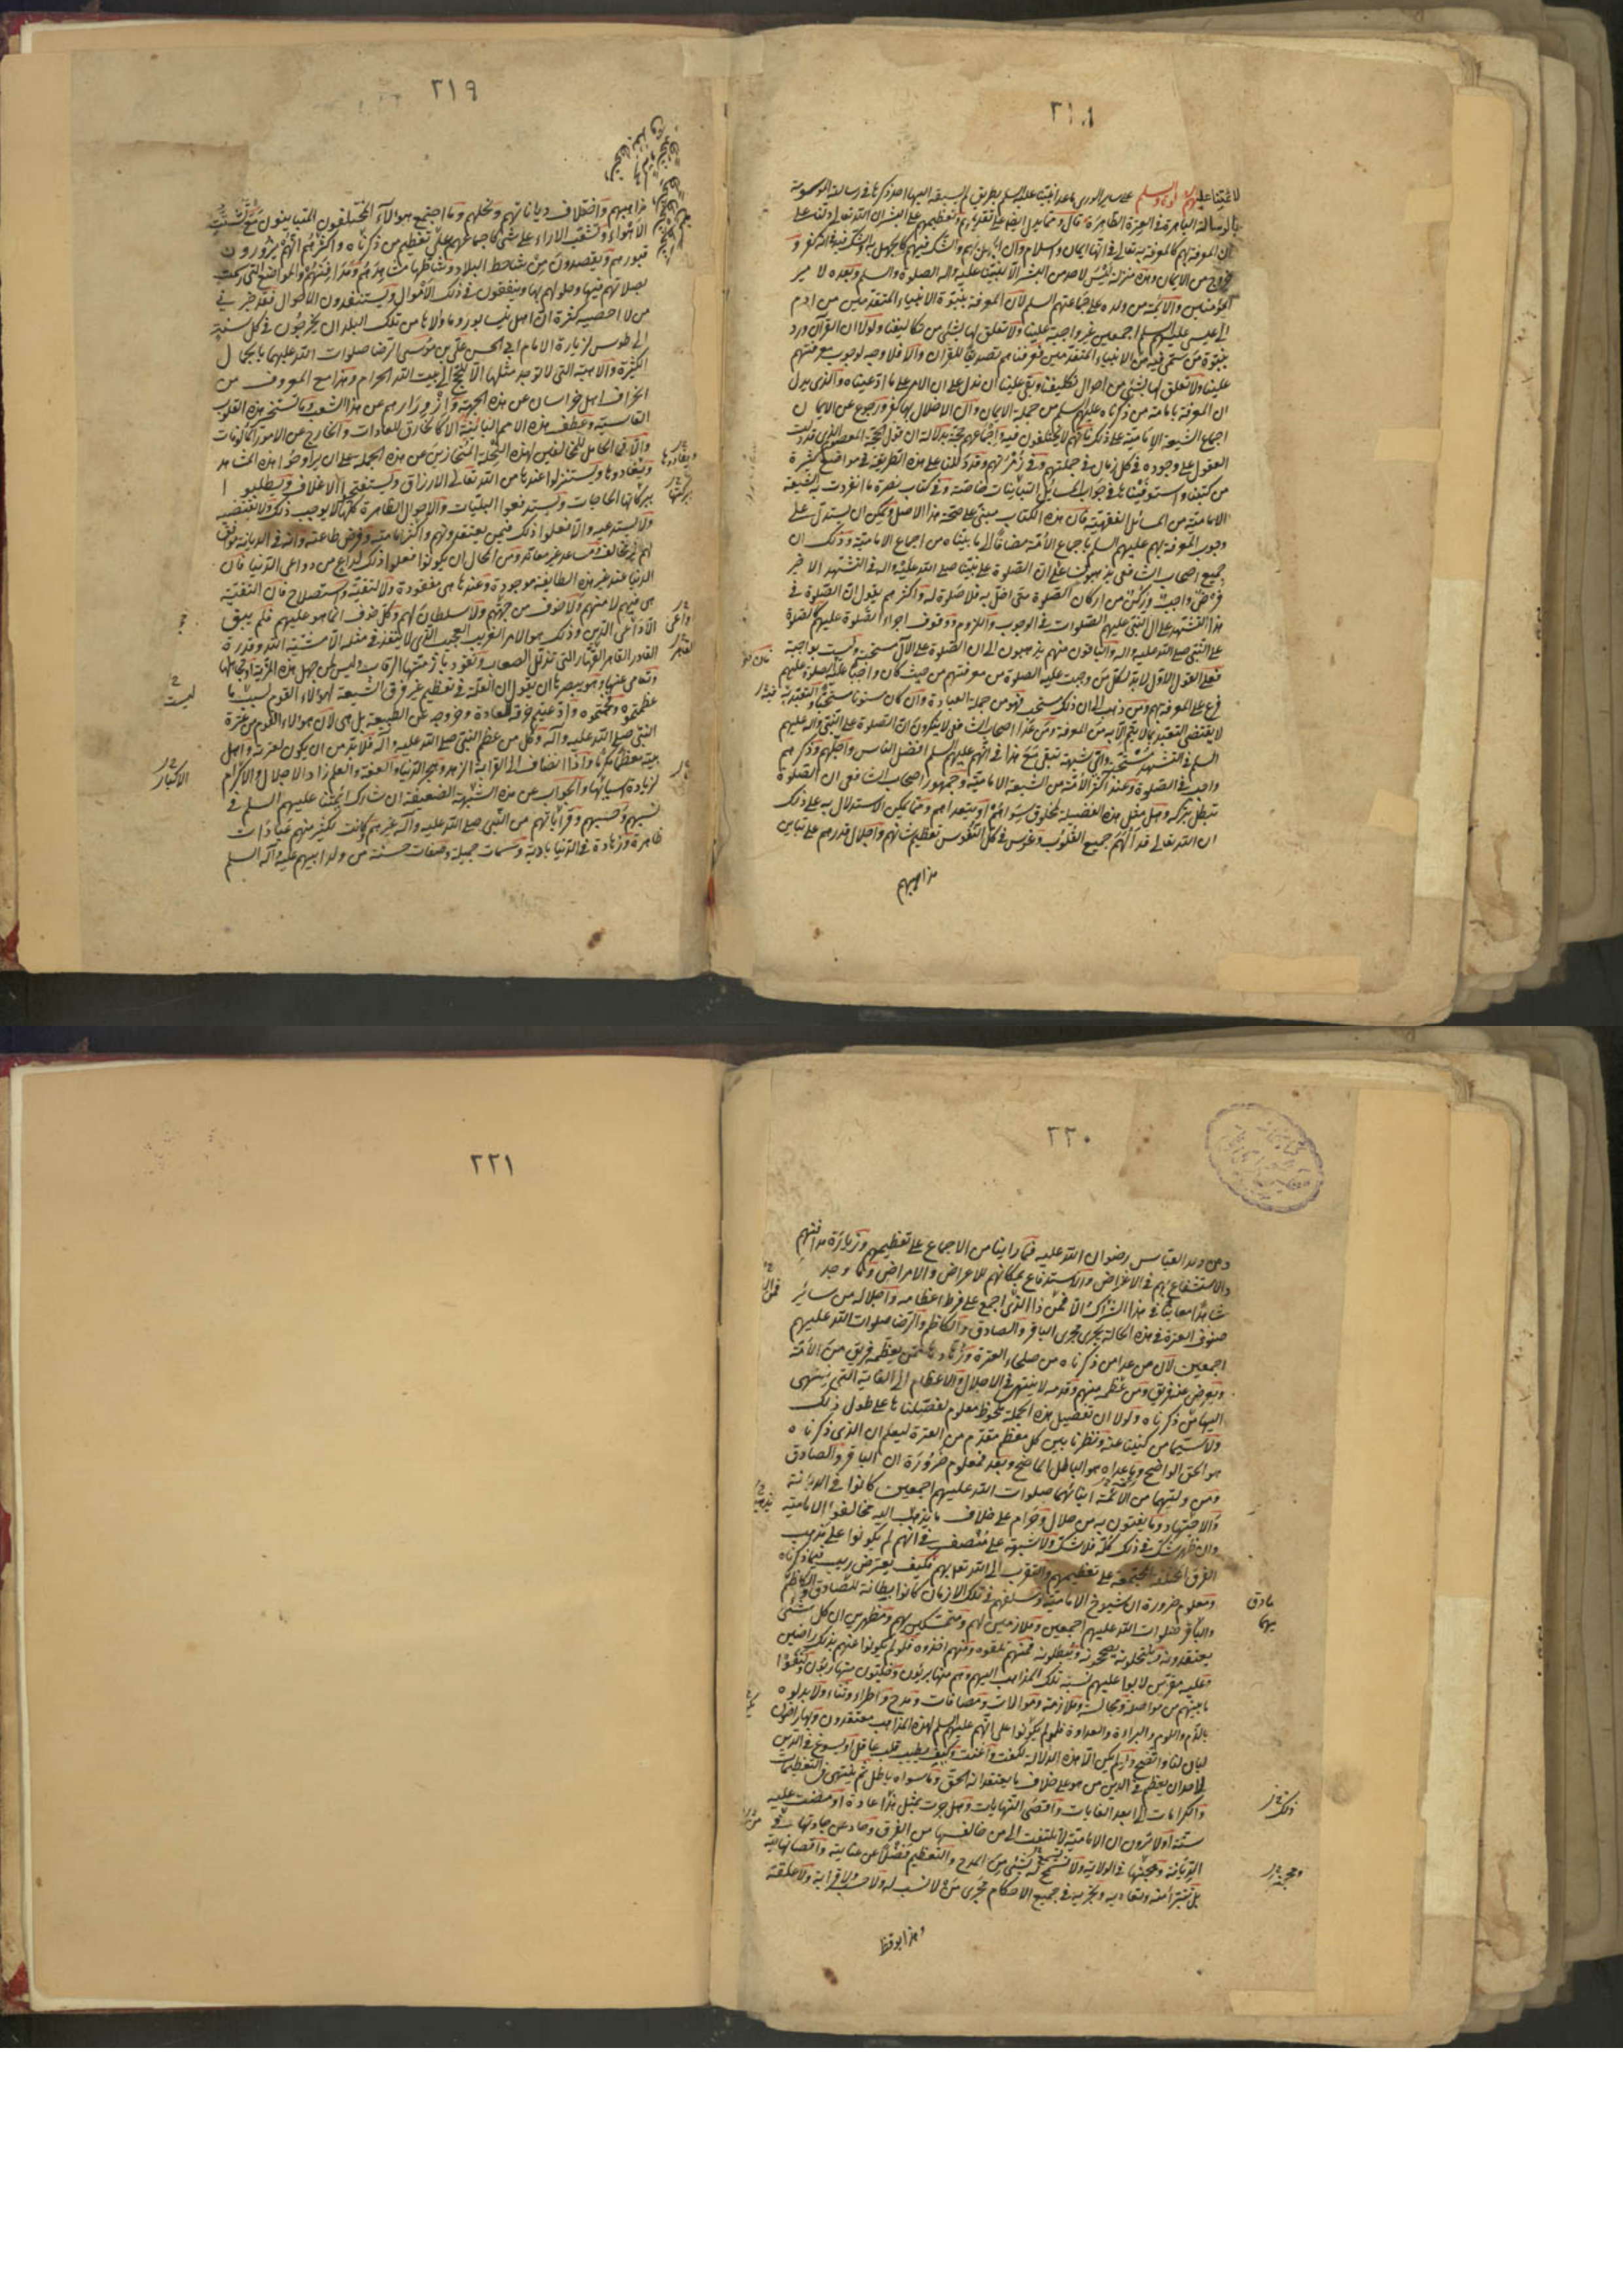 ٢١٨
لائمتنا عليهم الصلوة والسلم على ساير الورى ما عدا نبينا عليه السلم بطريق لم يسبقه اليها احد ذكرها في رسالته الموسومة
بالرسالة الباهرة في العترة الطاهرة قال ومما يدل ايضا على تقديمهم وتعظيمهم على البشر ان الله تعالى دلنا على
ان المعرفة بهم كالمعرفة به تعالى في انها ايمان واسلام وان الجهل بهم والشك فيهم كالجهل به والشك فيه في انه كفر و
خروج من الايمان وهذه منزلة ليس لاحد من البشر الا لنبينا عليه واله الصلوة والسلم وبعده لامير
المؤمنين والائمة من ولده على جماعتهم السلم لان المعرفة بنبوة الانبياء المتقدمين من ادم
الى عيسى عليهم السلم اجمعين غير واجبة علينا ولا تعلق لها بشئ من تكاليفنا ولولا ان القران ورد
بنبوة من سمى فيه من الانبياء المتقدمين فعرفناهم تصديقا للقران والا فلا وجه لوجوب معرفتهم
علينا ولا تعلق لها بشئ من احوال تكليفنا وبقى علينا ان ندل على ان الامر على ما ادعيناه والذى يدل
ان المعرفة بامامة من ذكرناه عليهم السلم من جملة الايمان وان الاخلال بها كفر ورجوع عن الايمان
اجماع الشيعة الامامية على ذلك فانهم لا يختلفون فيه واجماعهم حجة بدلالة ان قول الحجة المعصوم الذى قد دلت
العقول على وجوده في كل زمان في جملتهم وفي زمرتهم وقد دللنا على هذه الطريقة في مواضع كثيرة
من كتبنا واستوفيناها في جواب المسائل التبانيات خاصة وفي كتاب نصرة ما انفردت به الشيعة
الامامية من المسائل الفقهية فان هذا الكتاب مبنى على صحة هذا الاصل ويمكن ان يستدل على
وجوب المعرفة بهم عليهم السلم باجماع الامة مضافا الى ما بيناه من اجماع الامامية وذلك ان
جميع اصحاب الشافعى يذهبون على ان الصلوة على نبينا صلى الله عليه واله في التشهد الاخير
فرض واجب وركن من اركان الصلوة متى اخل به فلا صلوة له واكثرهم يقول ان الصلوة في
هذا التشهد على ال النبى عليهم الصلوات في الوجوب واللزوم ووقوف اجزاء الصلوة عليهم كالصلوة
على النبى صلى الله عليه واله والباقون منهم يذهبون الى ان الصلوة على الال مستحبة وليست بواجبة
فعلى القول الاول لا بد لكل من وجبت عليه الصلوة من معرفتهم من حيث كان واجبا عليه الصلوة عليهم
فرع على المعرفة بهم ومن ذهب الى ان ذلك مستحب فهو من جملة العبادة وان كان مسنونا مستحبا والتعبد به
لا يقتضى التعبد بما لا يتم الا به من المعرفة ومن عدا اصحاب الشافعى لا ينكرون ان الصلوة على النبى واله عليهم
السلم في التشهد مستحبة واى شبهة تبقى مع هذا في انهم عليهم السلم افضل الناس واجلهم وذكرهم
واجب في الصلوة وعند اكثر الامة من الشيعة الامامية وجمهور اصحاب الشافعى ان الصلوة
تبطل بتركه وهل مثل هذه الفضيلة لمخلوق سواهم او يتعداهم ومما يمكن الاستدلال به على ذلك
ان الله تعالى قد الهم جميع القلوب وغرس في كل النفوس تعظيم شانهم واجلال قدرهم على تباين
مذاهبهم
٢١٩
مذاهبهم واختلاف دياناتهم ونحلهم وما اجتمع هولاء المختلفون المتباينون مع تشتت
الاهواء وتشعب الاراء على شئ كاجماعهم على تعظيم من ذكرناه واكثرهم انهم يزورون
قبورهم ويقصدون من شاحط البلاد وشاطرها مشاهدهم ومدافنهم والمواضع التى رسمت
بصلاتهم فيها وحلولهم بها وينفقون في ذلك الاموال ويستنفدون الاحوال فقد خبرنى
من لا احصيه كثرة ان اهل نيسابور وما والاها من تلك البلدان يخرجون في كل سنة
الى طوس لزيارة الامام ابى الحسن على بن موسى الرضا صلوات الله عليهما بالجمال
الكثيرة والاهبة التى لا توجد مثلها الا للحج الى بيت الله الحرام وهذا مع المعروف من
انحراف اهل خراسان عن هذه الجهة وازورارهم عن هذا الشعب وما تسخير هذه القلوب
القاسية وعطف هذه الامم البائنة الا كالخارق للعادات والخارج عن الامور المالوفات
والا فما الحامل للمخالفين لهذه النحلة المنحازين عن هذه الجملة على ان يراوحوا هذه المشاهد
ويغادوها ويستنزلوا عندها من الله تعالى الارزاق ويستفتحوا الاغلاق ويطلبوا
ببركاتها الحاجات ويستدفعوا البليات والاحوال الظاهرة كلها لا يوجب ذلك ولا يقتضيه
ولا يستدعيه والا فعلوا ذلك فيمن يعتقدونهم واكثر امامته وفرض طاعته وانه في الديانة موافق
لهم غير مخالف ومساعد غير معاند ومن المحال ان يكونوا فعلوا ذلك لداع من دواعى الدنيا فان
الدنيا عند غير هذه الطايفة موجودة وعندها هى مفقودة ولا لتقية واستصلاح فان التقية
هى فيهم لا منهم ولا خوف من جهتهم ولا سلطان لهم وكل خوف انما هو عليهم فلم يبق
الا داعى الدين وذلك هو الامر الغريب العجيب الذى لا ينفذ في مثله الا مشية الله وقدرة
القادر القاهر القهار التى تذلل الصعاب وتقود بازمتها الرقاب وليس لمن جهل هذه المزية او تجاهلها
وتعامى عنها وهو يبصرها ان يقول ان العلة في تعظيم غير فرق الشيعة لهولاء القوم ليست ما
عظمتموه وفخمتموه وادعيتم خرقه للعادة وخروجه عن الطبيعة بل هى لان هولاء القوم من عترة
النبى صلى الله عليه وآله وكل من عظم النبى صلى الله عليه وآله فلا بد من ان يكون لعترته واهل
بيته معظما مكرما واذا انضاف الى القرابة الزهد وهجر الدنيا والعفة والعلم زاد الاجلال والاكرام
لزيادة اسبابهما والجواب عن هذه الشبهة الضعيفة ان شارك ائمتنا عليهم السلم في
نسبهم وحسبهم وقراباتهم من النبى صلى الله عليه وآله غيرهم وكانت لكثير منهم عبادات
ظاهرة وزهادة في الدنيا بادية وسمات جميلة وصفات حسنة من ولد ابيهم عليه وآله السلم
٢٢٠
ومن ولد العباس رضوان الله عليه فما راينا من الاجماع على تعظيمهم وزيارة مدافنهم
والاستشفاع بهم في الاغراض والاستدفاع بمكانهم للاعراض والامراض وما وجد
شاهدا معاينا في هذا الشراك الا فمن ذا الذى اجمع على فرط اعظامه واجلاله من ساير
صنوف العترة في هذه الحالة يجرى مجرى الباقر والصادق والكاظم والرضا صلوات الله عليهم
اجمعين لان من عدا من ذكرناه من صلحاء العترة وزهادها ممن يعظمه فريق من الامة
ويعرض عنه فريق ومن عظمه منهم وقدمه لا ينتهى في الاجلال والاعظام الى الغاية التى ينتهى
اليها من ذكرناه ولولا ان تفصيل هذه الجملة ملحوظ معلوم لفصلناها على طول ذلك
ولاسمينا من كنينا عنه ونظرنا بين كل معظم مقدم من العترة ليعلم ان الذى ذكرناه
هو الحق الواضح وما عداه هو الباطل الماضح وبعد فمعلوم ضرورة ان الباقر والصادق
ومن وليهما من الائمة ابنائهما صلوات الله عليهم اجمعين كانوا في الديانة
والاجتهاد وما يفتون به من حلال وحرام على خلاف ما يذهب اليه مخالفوا الامامية
وان ظهر شك في ذلك كله فلا شك ولا شبهة على منصف في انهم لم يكونوا على مذهب
الفرق المختلفة المجتمعة على تعظيمهم والتقرب الى الله تعالى بهم فكيف يعترض ريب فيما ذكرناه
ومعلوم ضرورة ان شيوخ الامامية وسلفهم في تلك الازمان كانوا بطانة للصادق والكاظم
والباقر صلوات الله عليهم اجمعين وملازمين لهم ومتمسكين بهم ومظهرين ان كل شئ
يعتقدونه وينتحلونه ويصححونه ويبطلونه فمنهم تلقوه وعنهم اخذوه فلو لم يكونوا عنهم بذلك راضين
وعليه مقرين لابوا عليهم نسبة تلك المذاهب اليهم وهم منها بريئون وخليون
ما بينهم من مواصلة ومجالسة وملازمة وموالات ومصافات ومدح واطراء وثناء ولابدلوه
بالذم واللوم والبراءة والعداوة فلو لم يكونوا على انهم عليهم السلم لهذه المذاهب معتقدون وبها راضون
لبان لنا واتضح ولو لم يكن الا هذه الدلالة لكفت واغنت وكيف يطيب قلب عاقل او يسوغ في الدين
لاحد ان يعظم في الدين من هو على خلاف ما يعتقد انه الحق وما سواه باطل ثم ينتهى في التعظيمات
والكرامات الى ابعد الغايات واقصى النهايات وهل جرت بمثل هذا عادة او مضت عليه
سنة اولا يرون ان الامامية لا تلتفت الى من خالفها من الفرق وحاد عن جادتها في
الديانة ومحجتها في الولاية ولا تسمح له بشئ من المدح والتعظيم فضلا عن غايته واقصى نهايته
بل تتبرأ منه وتعاديه وتجريه في جميع الاحكام مجرى من لا نسب له ولا حسب ولا قرابة ولا علقة
وهذا يوقظ
٢٢١